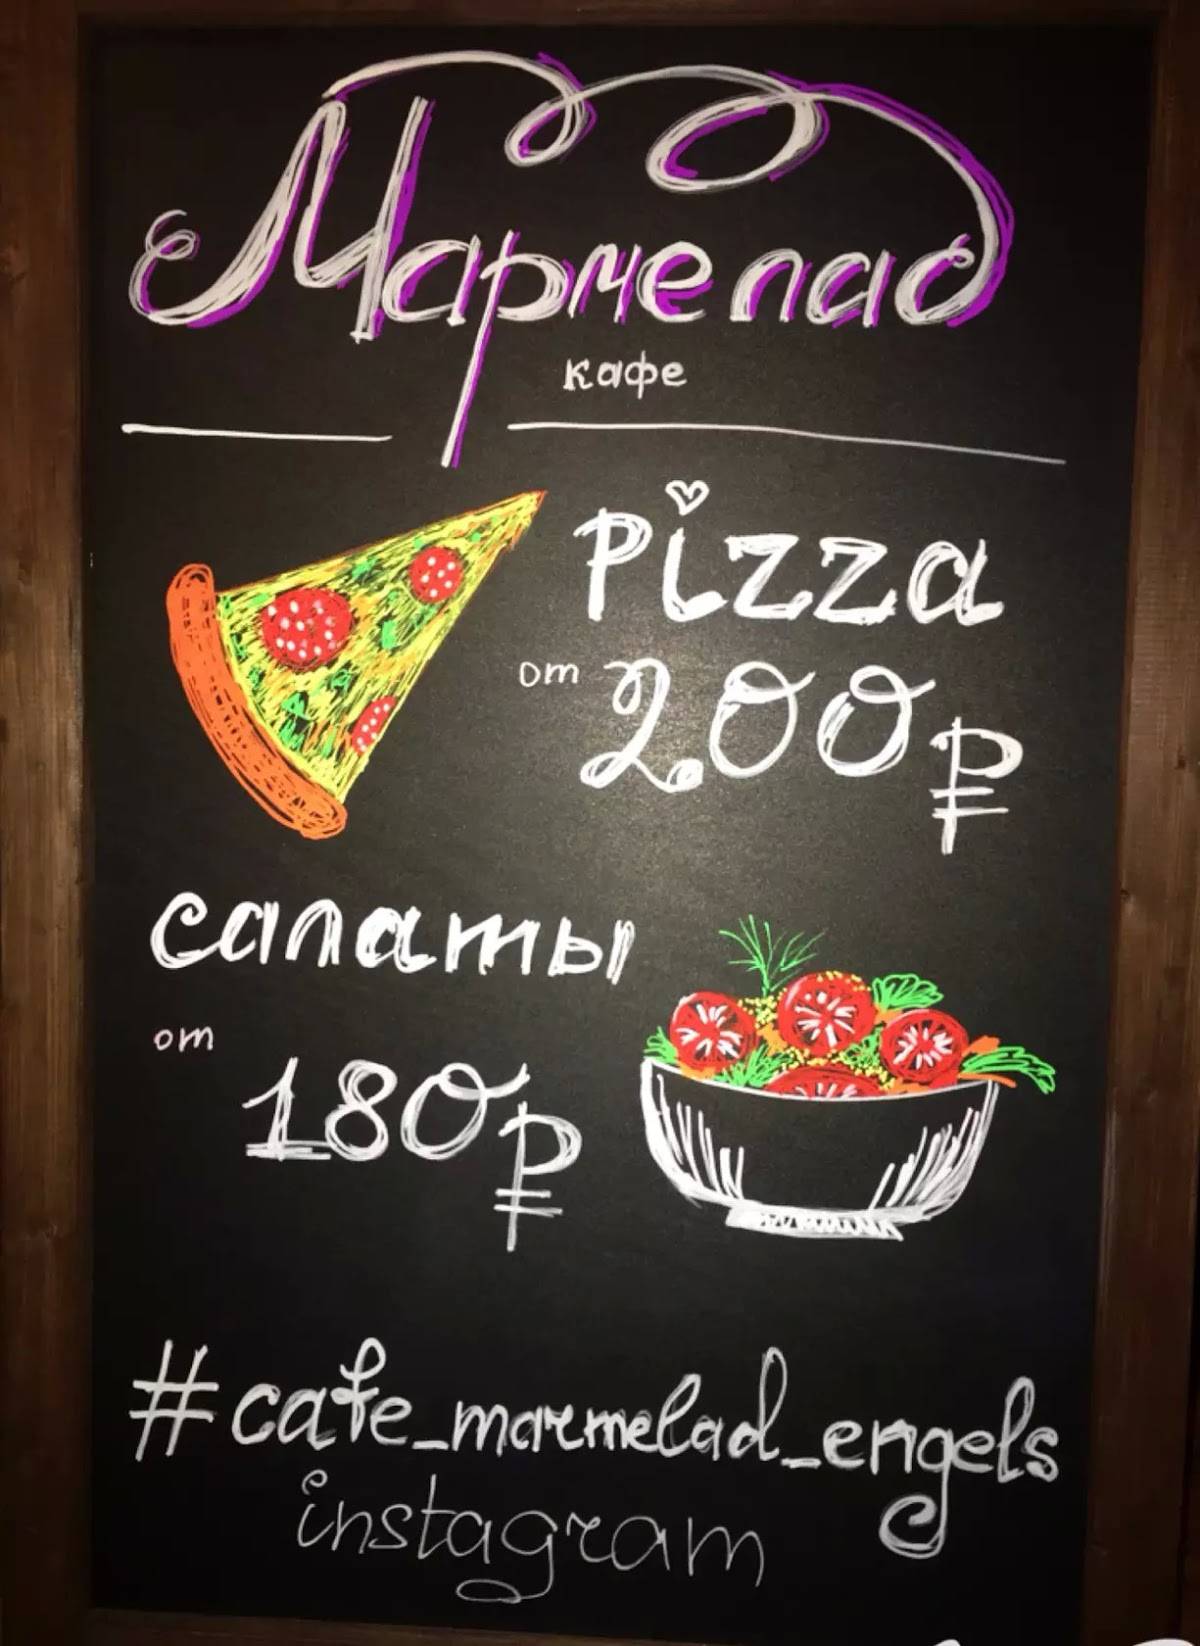 Мармелад
кафе
Pizza
от 200₽
салаты
от
180₽
#cafe_marmelad_engels
instagram